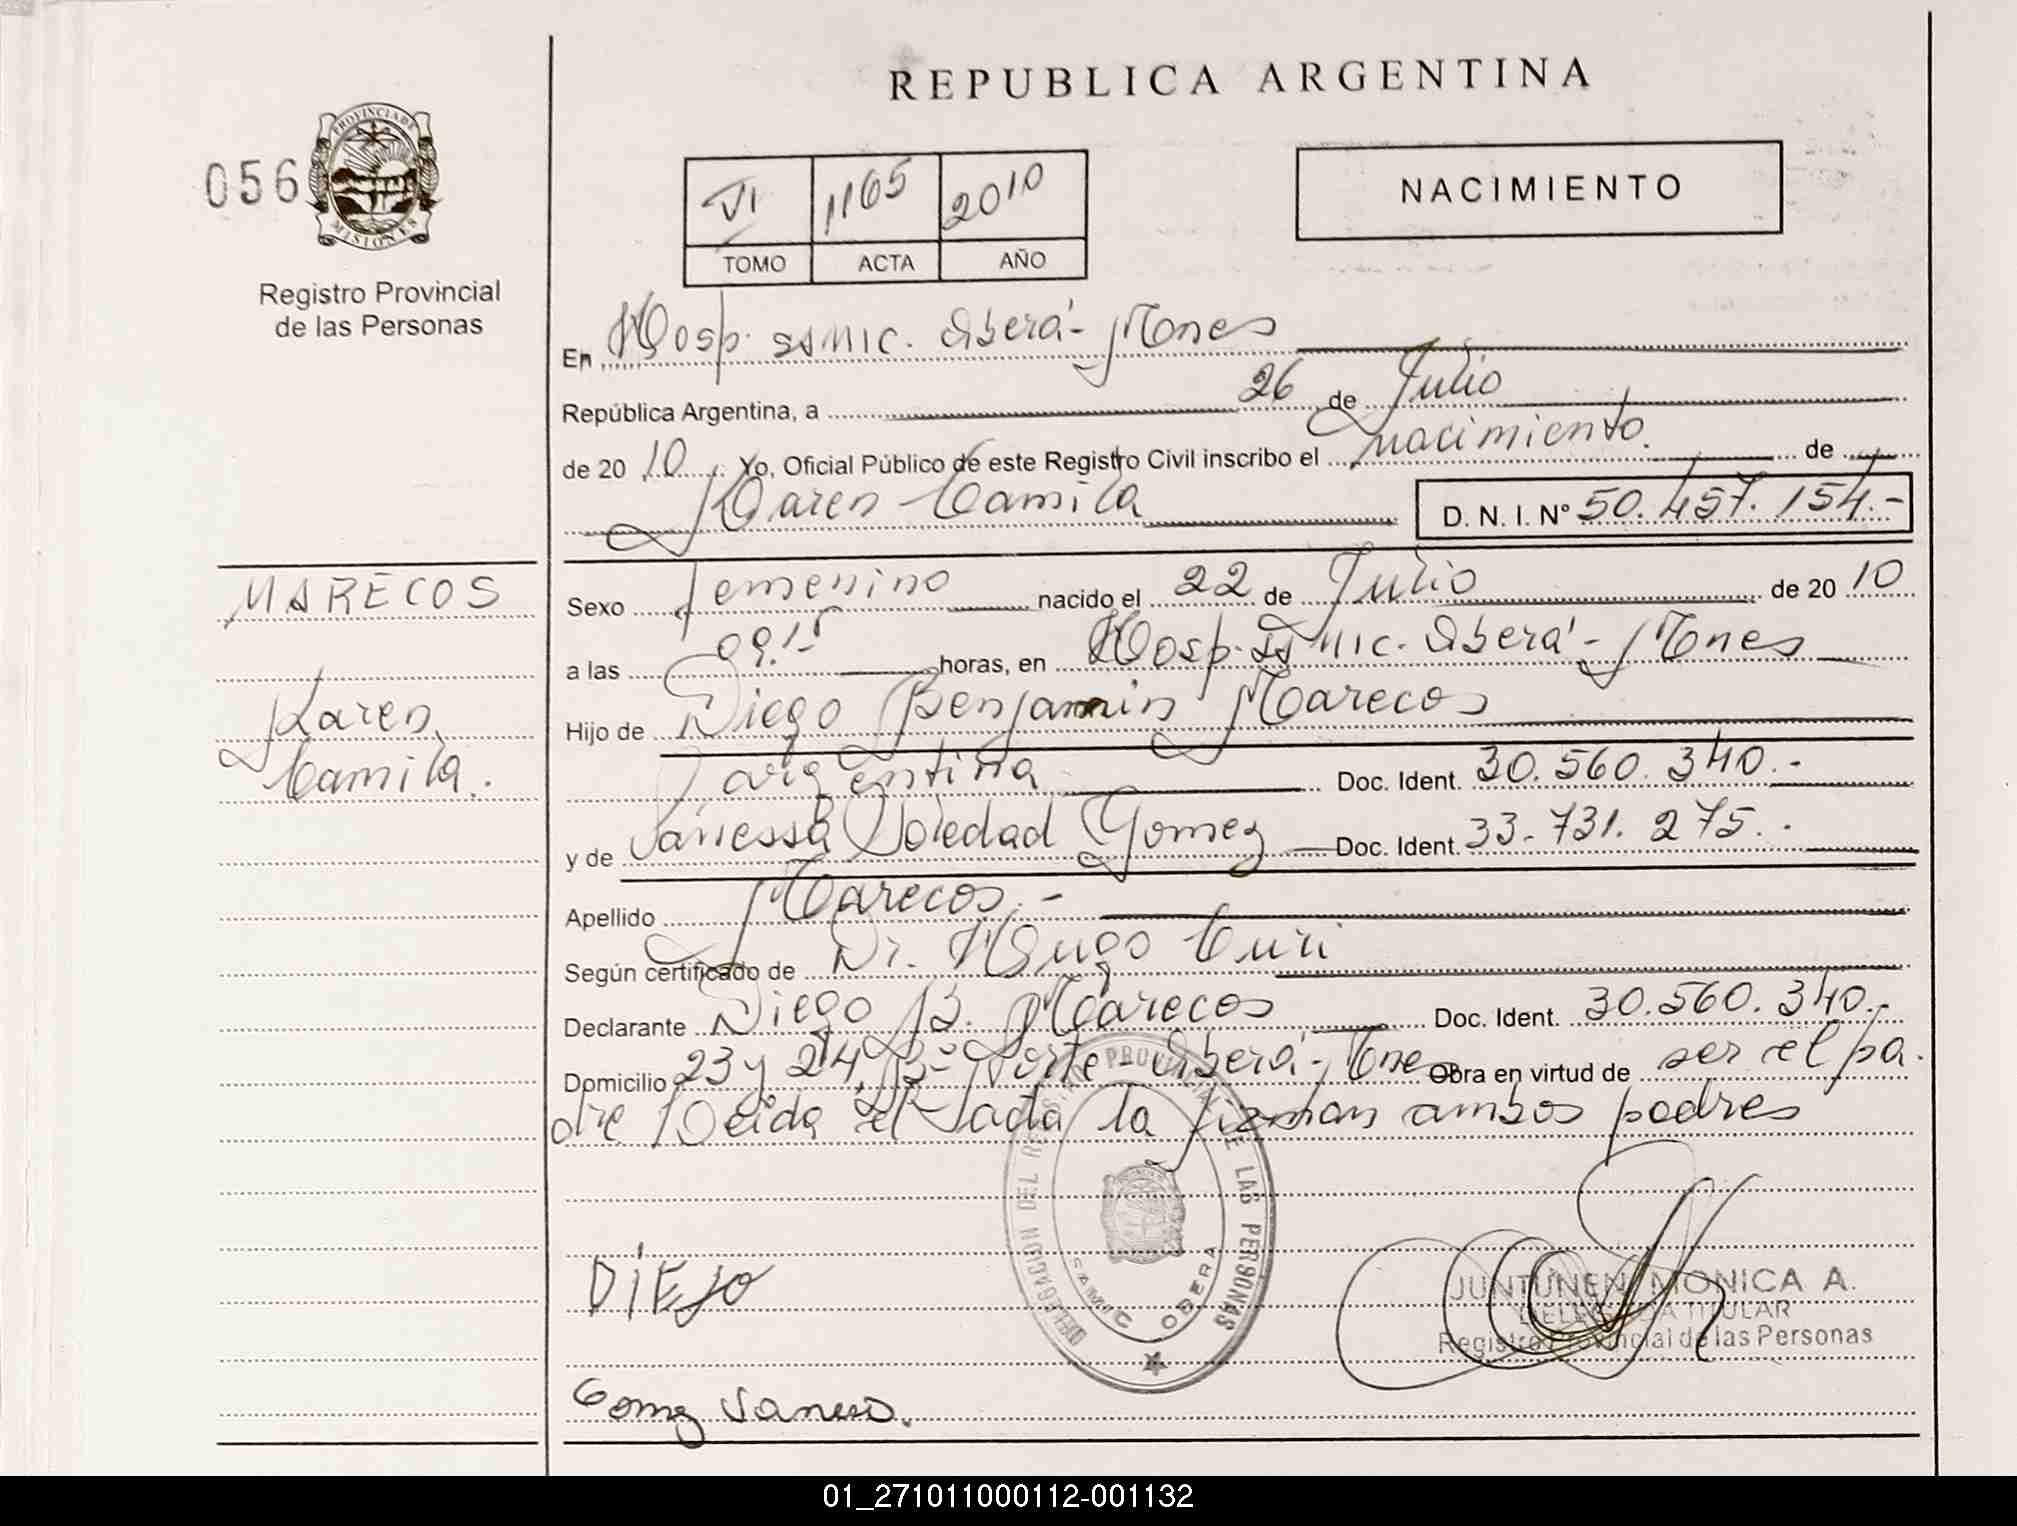 REPUBLICA ARGENTINA
056
PROVINCIA DE
MISIONES
Registro Provincial
de las Personas
VI 1165 2010
TOMO ACTA AÑO
NACIMIENTO
En Hosp. SAMIC. Oberá - Mones
República Argentina, a 26 de Julio
de 20 10 Yo, Oficial Público de este Registro Civil inscribo el nacimiento. de
Karen Camila D. N. I. Nº 50.457.154.-
MARECOS
Karen
Camila.
Sexo femenino nacido el 22 de Julio de 20 10
a las 09.15 horas, en Hosp. SAMIC. Oberá - Mones
Hijo de Diego Benjamin Marecos
argentina Doc. Ident. 30.560.340.-
y de Vanessa Soledad Gomez Doc. Ident. 33.731.275.-
Apellido Marecos.-
Según certificado de Dr. Hugo Curi
Declarante Diego B. Marecos Doc. Ident. 30.560.340.-
Domicilio 23 y 24, Bº Norte - Oberá - Mones Obra en virtud de ser el pa
dre Leida el acta la firman ambos padres
DELEGACION DEL REGISTRO PROVINCIAL DE LAS PERSONAS
SAMIC OBERA
DiEgo
JUNTUNEN MONICA A.
DELEGADA TITULAR
Registro Provincial de las Personas
Gomez Vanesa.
01_271011000112-001132